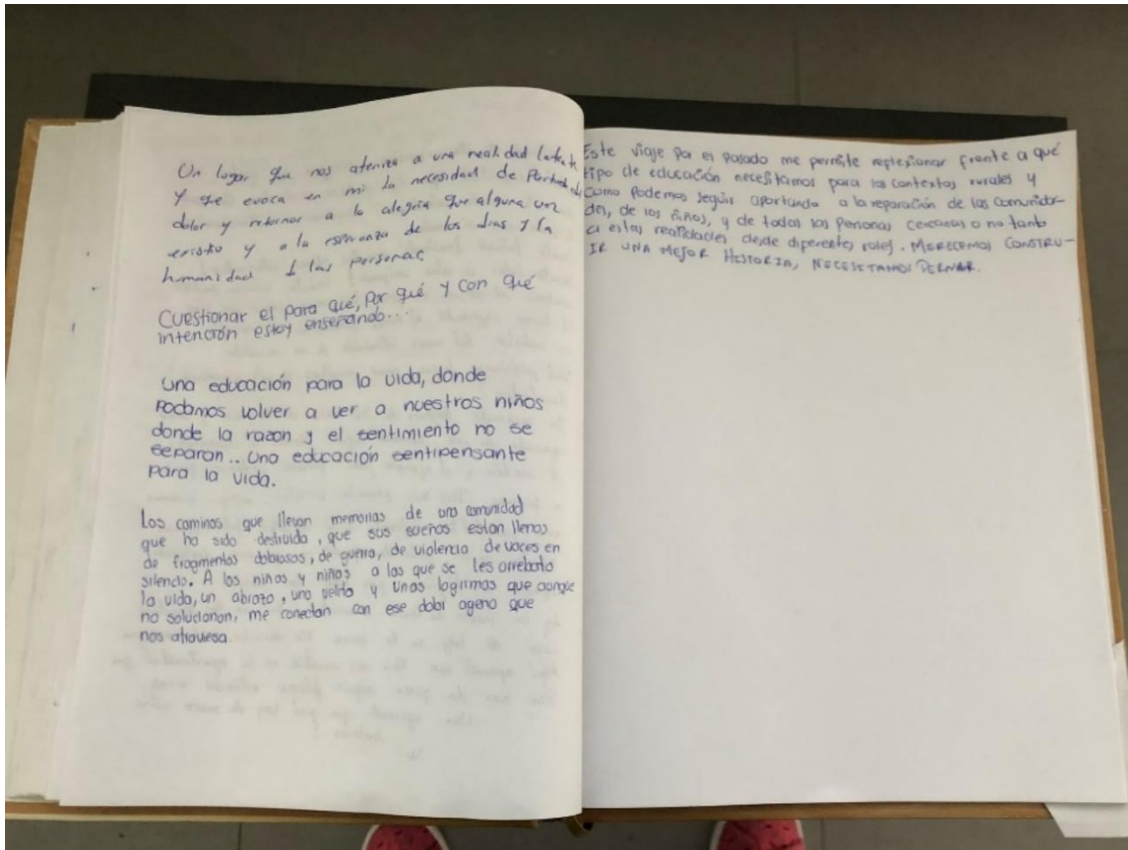 Un lugar que nos aterriza a una realidad latente
Y que evoca en mi la necesidad de
dolor y retornar a la alegria que alguna vez
existio y a la esperanza de los dias y la
humanidad las personas
Cuestionar el para qué, Por qué y con qué
intención estoy enseñando...
Una educación para la vida, donde
Podamos volver a ver a nuestros niños
donde la razon y el sentimiento no se
separan.. Una educación sentipensante
para la vida.
Los caminos que llevan memorias de una comunidad
que ha sido destruida, que sus sueños estan llenos
de fragmentos dolorosos, de guerra, de violencia de voces en
silencio. A los niños y niñas a los que se les arrebato
la vida, un abrazo, una velita y unas lagrimas que aunque
no solucionan, me conectan con ese dolor ageno que
nos atraviesa.
Este viaje por el pasado me permite reflexionar frente a qué
tipo de educación necesitamos para los contextos rurales y
como Podemos seguir aportando a la reparación de las comunida-
des, de los niños, y de todas las personas cercanas o no tanto
a estas realidades desde diferentes roles. MERECEMOS CONSTRU-
IR UNA MEJOR HISTORIA, NECESITAMOS PENSAR.